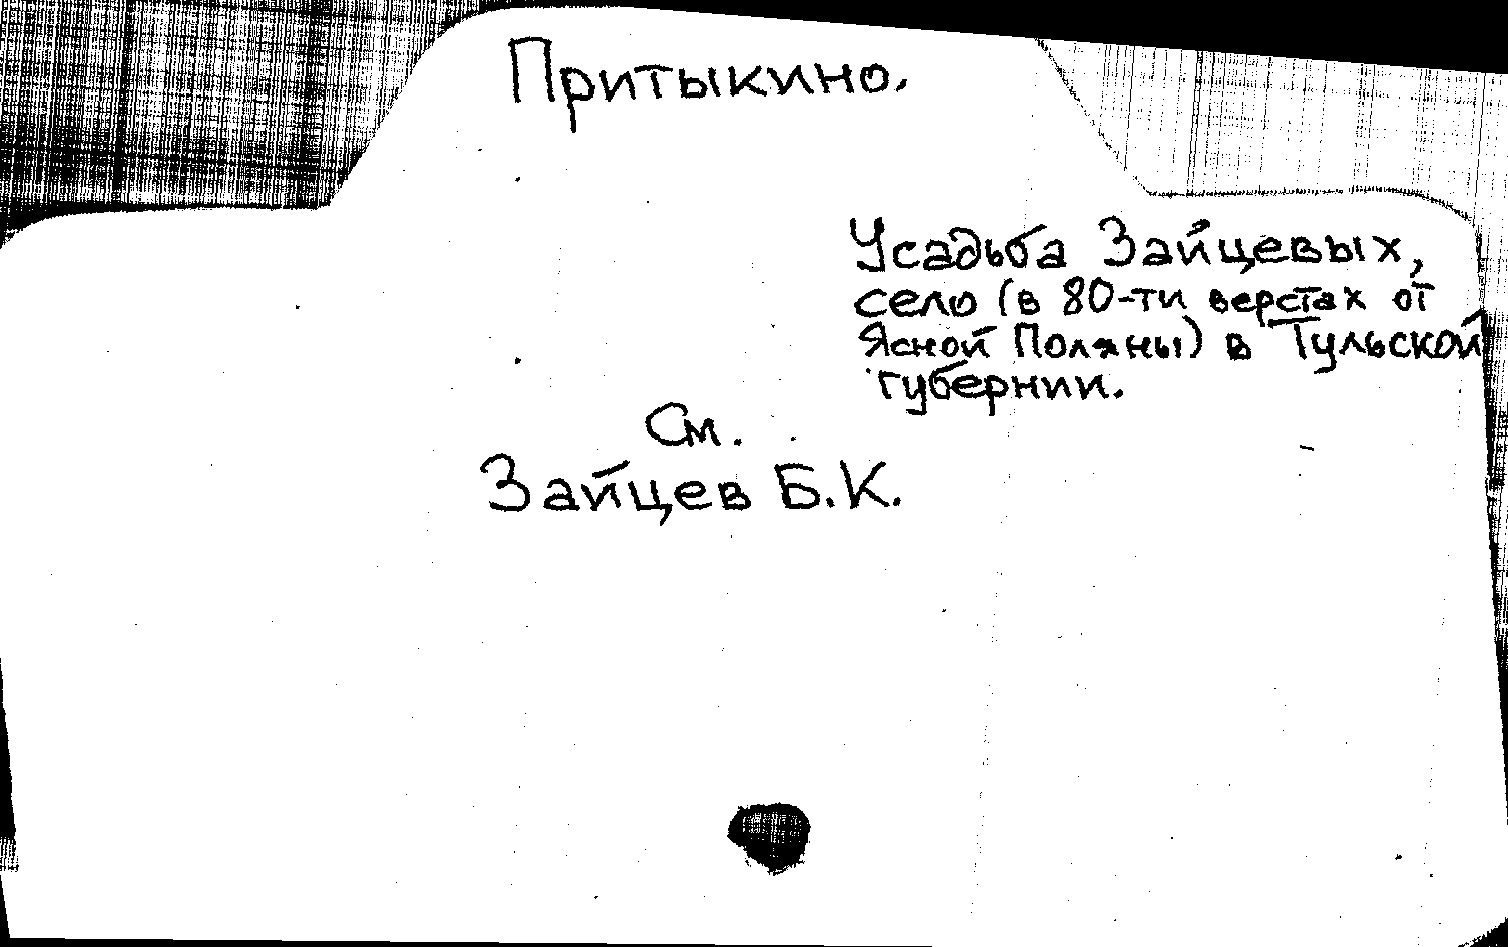 Притыкино.
Усадьба Зайцевых,
село (в 80-ти верстах от
Ясной Поляны) в Тульской
губернии.
См.
Зайцев Б.К.